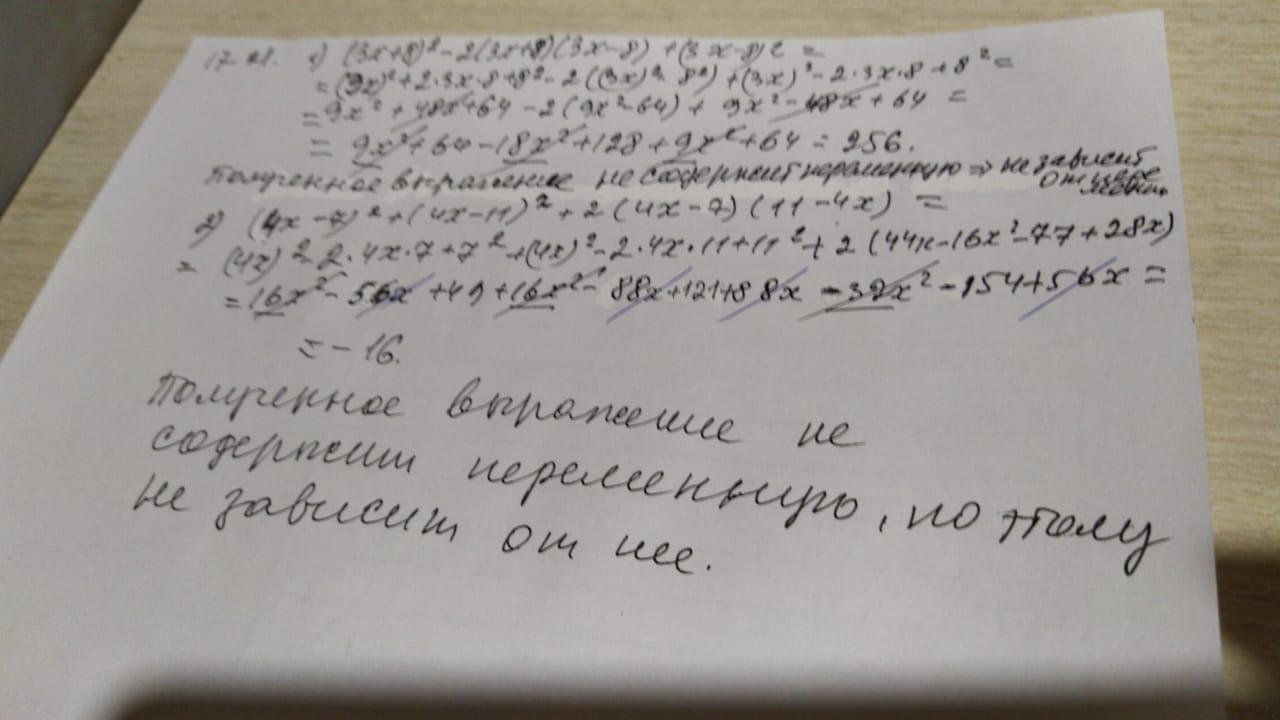 17.21. 1) (3x+8)² - 2(3x+8)(3x-8) + (3x-8)² =
= (3x)² + 2·3x·8 + 8² - 2((3x)² - 8²) + (3x)² - 2·3x·8 + 8² =
= 9x² + 48x + 64 - 2(9x² - 64) + 9x² - 48x + 64 =
= 9x² + 64 - 18x² + 128 + 9x² + 64 = 256.
Полученное выражение не содержит переменную => не зависит
от
2) (4x - 7)² + (4x - 11)² + 2(4x - 7)(11 - 4x) =
= (4x)² - 2·4x·7 + 7² + (4x)² - 2·4x·11 + 11² + 2(44x - 16x² - 77 + 28x)
= 16x² - 56x + 49 + 16x² - 88x + 121 + 88x - 32x² - 154 + 56x =
= - 16.
Полученное выражение не
содержит переменную, поэтому
не зависит от нее.